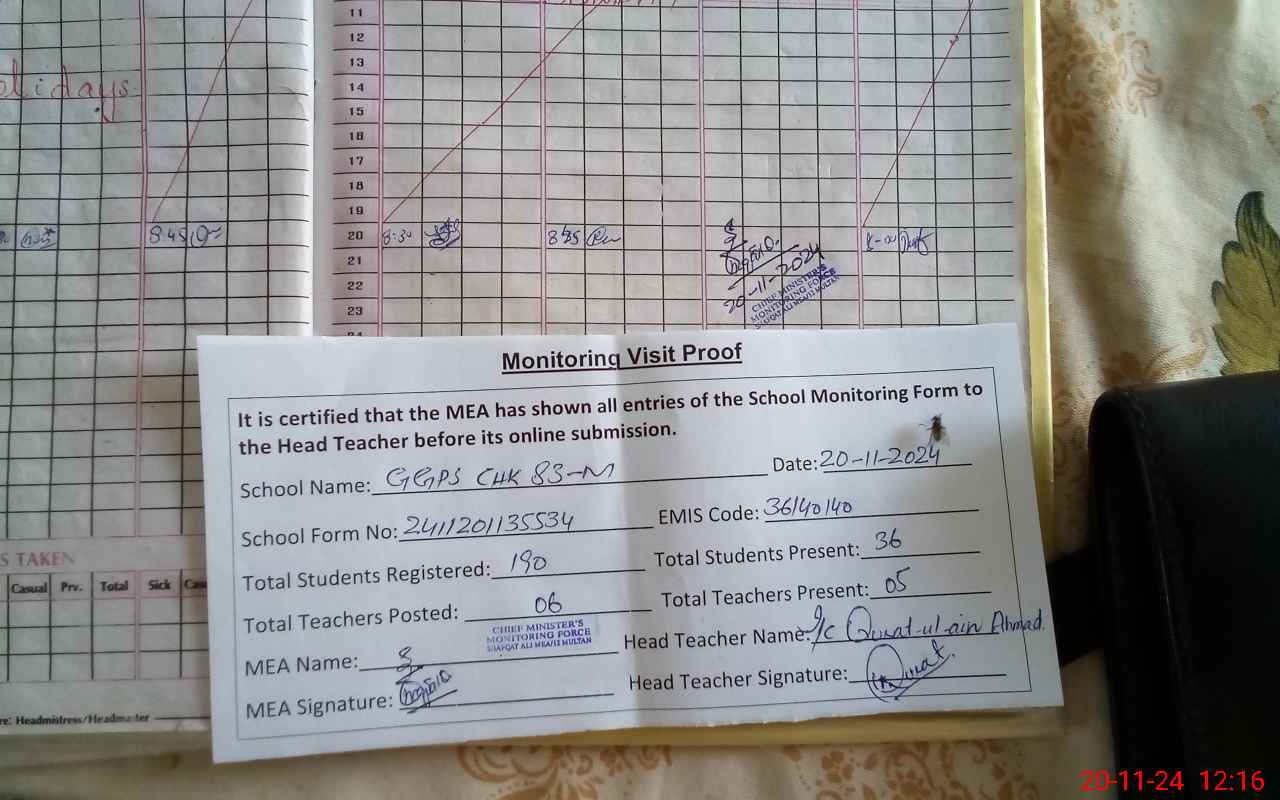 11
12
13
14
15
16
17
18
19
20
21
22
23
olidays
8:45
8:30
8:35
8-00
20-11-2024
CHIEF MINISTER'S
MONITORING FORCE
SHAFQAT ALI MEA/12 MULTAN
S TAKEN
Casual Prv. Total Sick Cas
re: Headmistress/Headmaster
Monitoring Visit Proof
It is certified that the MEA has shown all entries of the School Monitoring Form to
the Head Teacher before its online submission.
School Name: GGPS CHK 83-M Date: 20-11-2024
School Form No: 2411201135534 EMIS Code: 36140140
Total Students Registered: 190 Total Students Present: 36
Total Teachers Posted: 06 Total Teachers Present: 05
CHIEF MINISTER'S
MONITORING FORCE
SHAFQAT ALI MEA/12 MULTAN
MEA Name: Head Teacher Name: I/C Qurat-ul-ain Ahmad
MEA Signature: Head Teacher Signature: Qurat
20-11-24 12:16